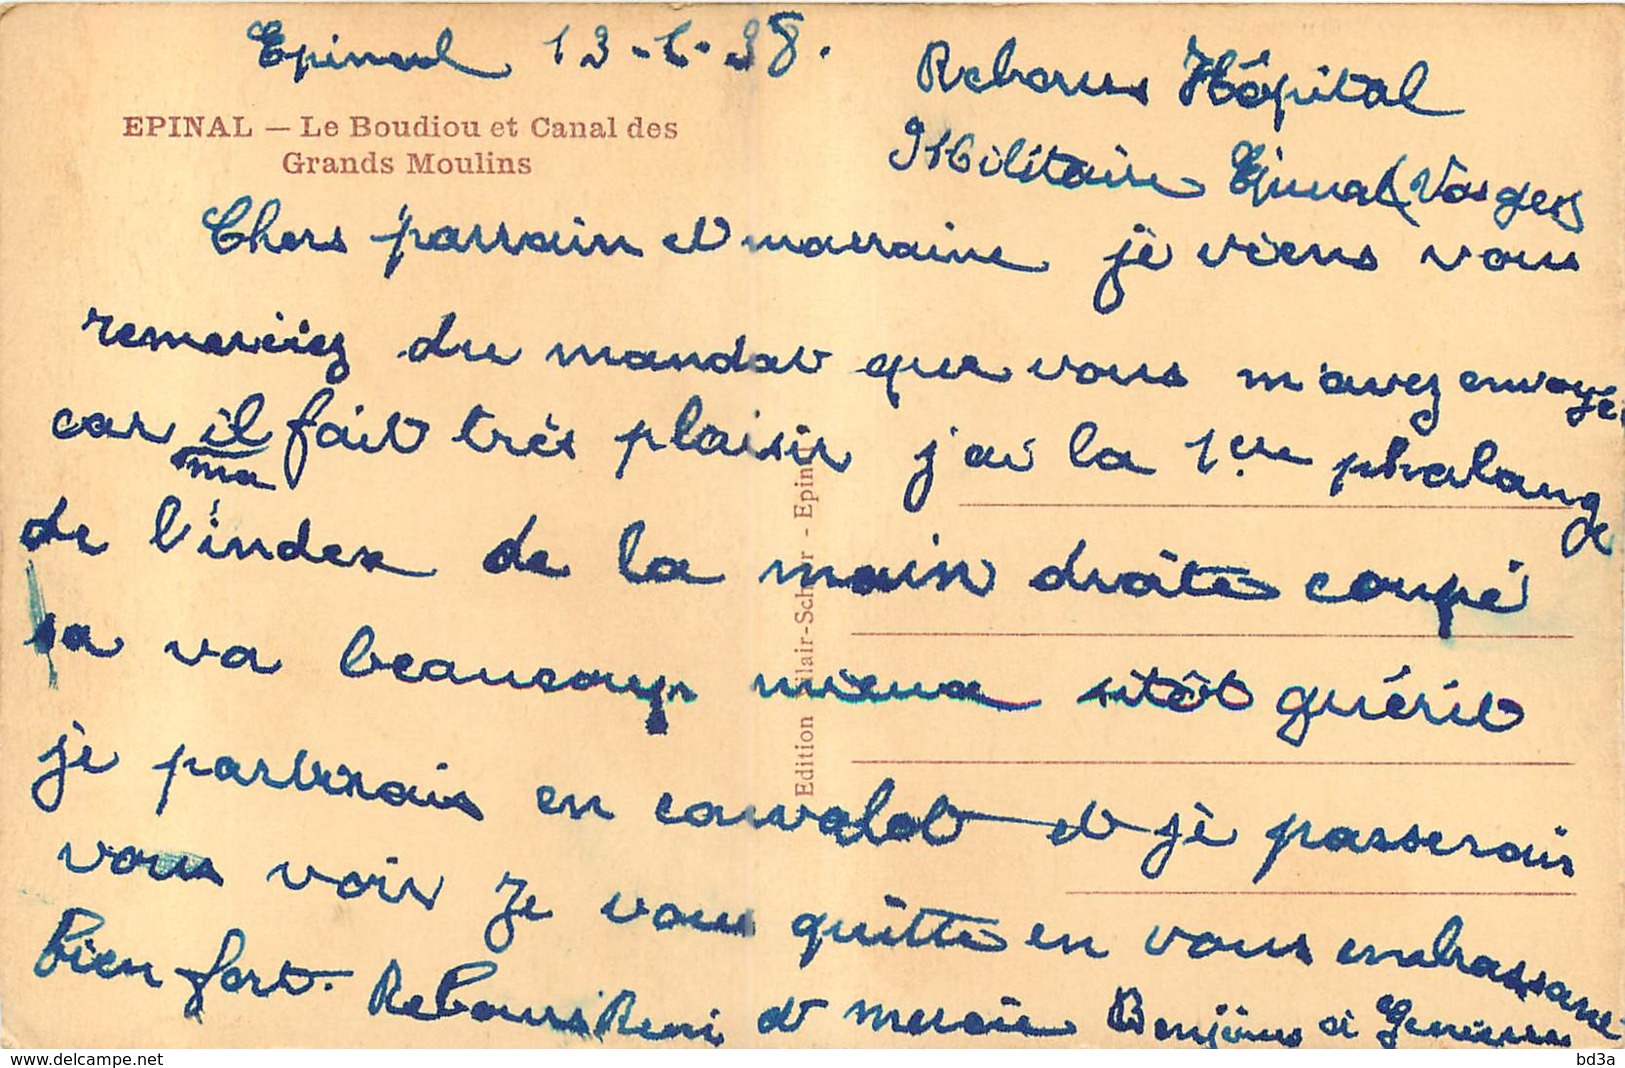 Epinal 13-1-38.
Rebours Hôpital
Militaire Epinal (Vosges)
EPINAL — Le Boudiou et Canal des
Grands Moulins
Chers parrain et marraine je viens vous
remerciez du mandat que vous m'avez envoyé
car il fait très plaisir j'ai la 1ere phalange
ma
de l'index de la main droîte coupé
sa va beaucoup mieux sitôt guérit
je partirais en convalot et je passerais
vous voir Je vous quitte en vous embrassant
bien fort. Rebours René et merci Bonjour à Genevieve
Edition -Scherr - Epinal
bd3a